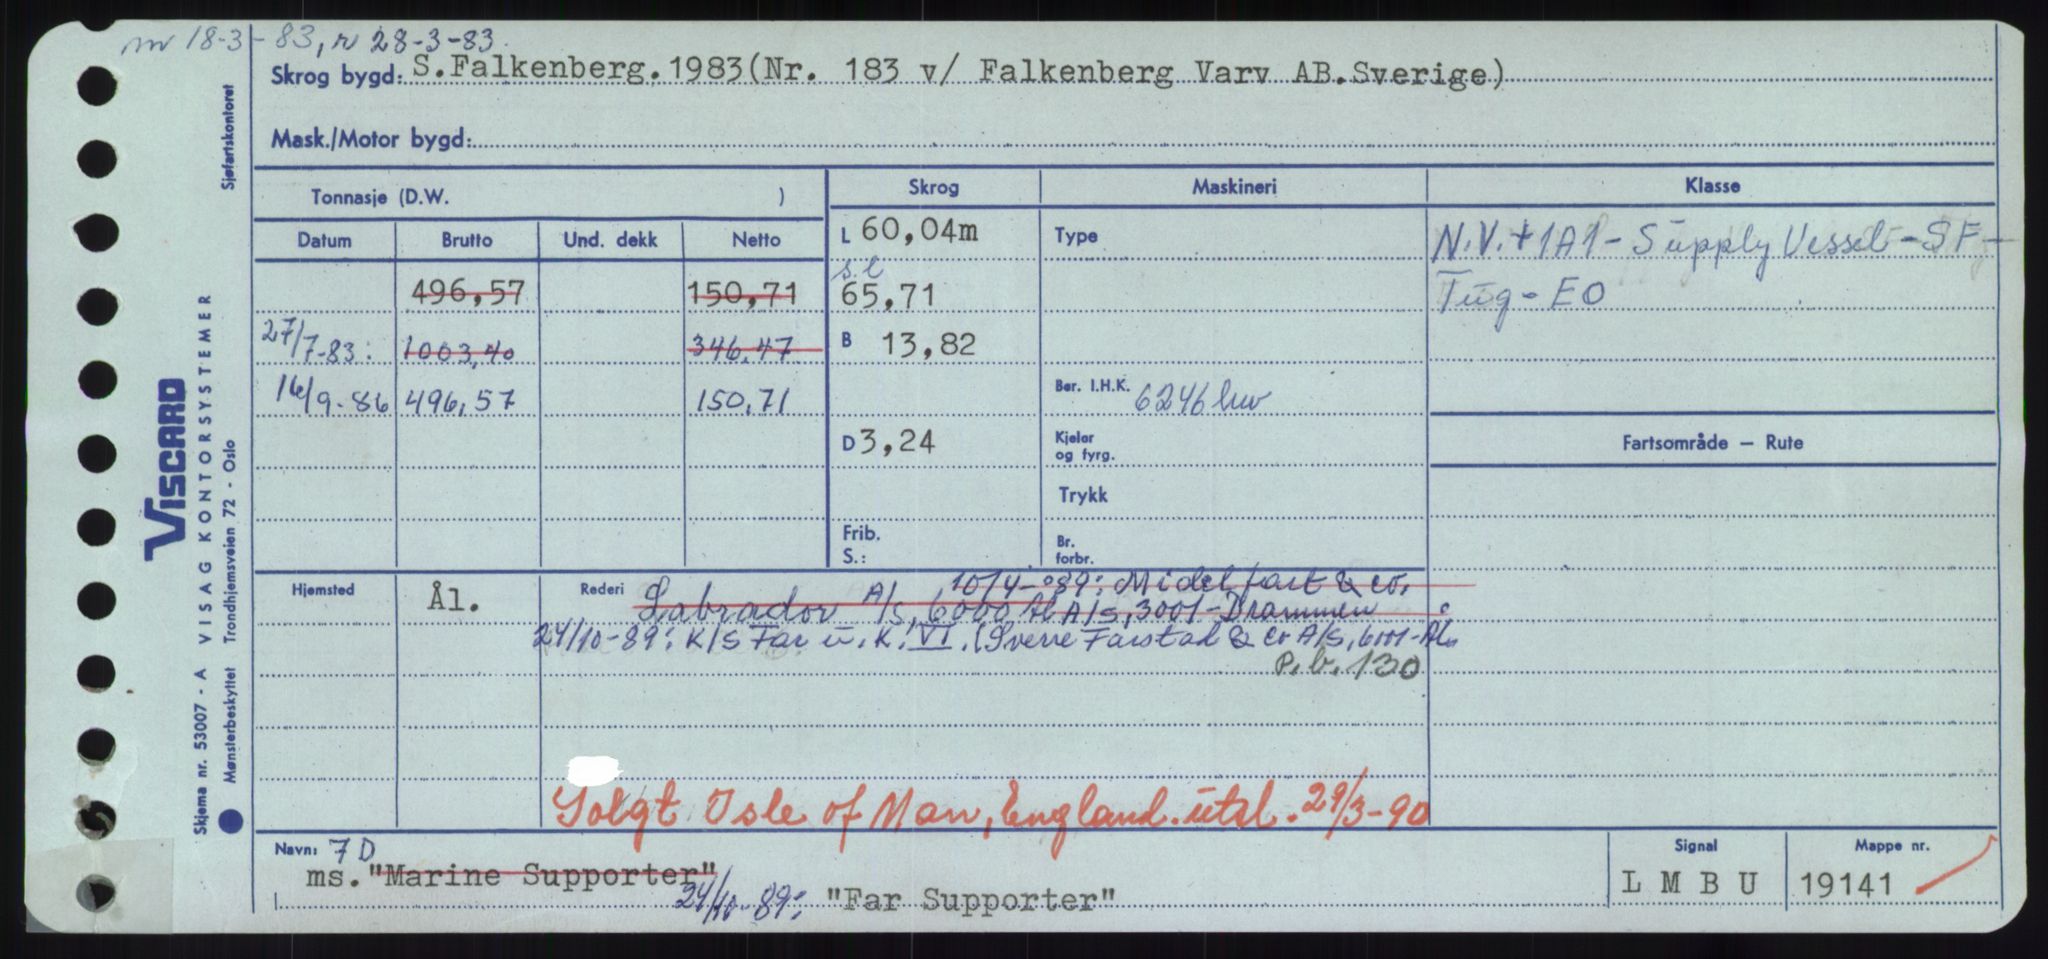 nv 18-3-83, r 28-3-83.
Skrog bygd: S.Falkenberg.1983(Nr. 183 v/ Falkenberg Varv AB.Sverige)
Mask./Motor bygd:
Tonnasje (D.W. )
Skrog
Maskineri
Klasse
Datum Brutto Und. dekk Netto
L 60,04m
Type
N.V.+1A1-Supply Vessel-SF-
Tug-EO
496,57 150,71
s.l
65,71
27/7-83: 1003,40 346,47
B 13,82
16/9-86 496,57 150,71
Ber. I.H.K. 6246 hw
D 3,24
Kjelar
og fyrg.
Fartsområde – Rute
Trykk
Frib.
S.:
Br.
forbr.
Hjemsted Ål. Rederi
10/4-89: Midelfart & co.
Labrador A/S, 6000 Ål A/S, 3001-Drammen
24/10-89: K/S Far u. K. VI. (Sverre Farstad & co A/S, 6001-Ål.
P.b. 130
Solgt Isle of Man, England. utsl. 29/3-90
Navn: 7D
ms. "Marine Supporter"
24/10-89: "Far Supporter"
Signal
L M B U
Mappe nr.
19141
Sjøfartskontoret
VISCARD
Skjema nr. 53007 - A VISAG KONTORSYSTEMER
Mønsterbeskyttet Trondhjemsveien 72 - Oslo